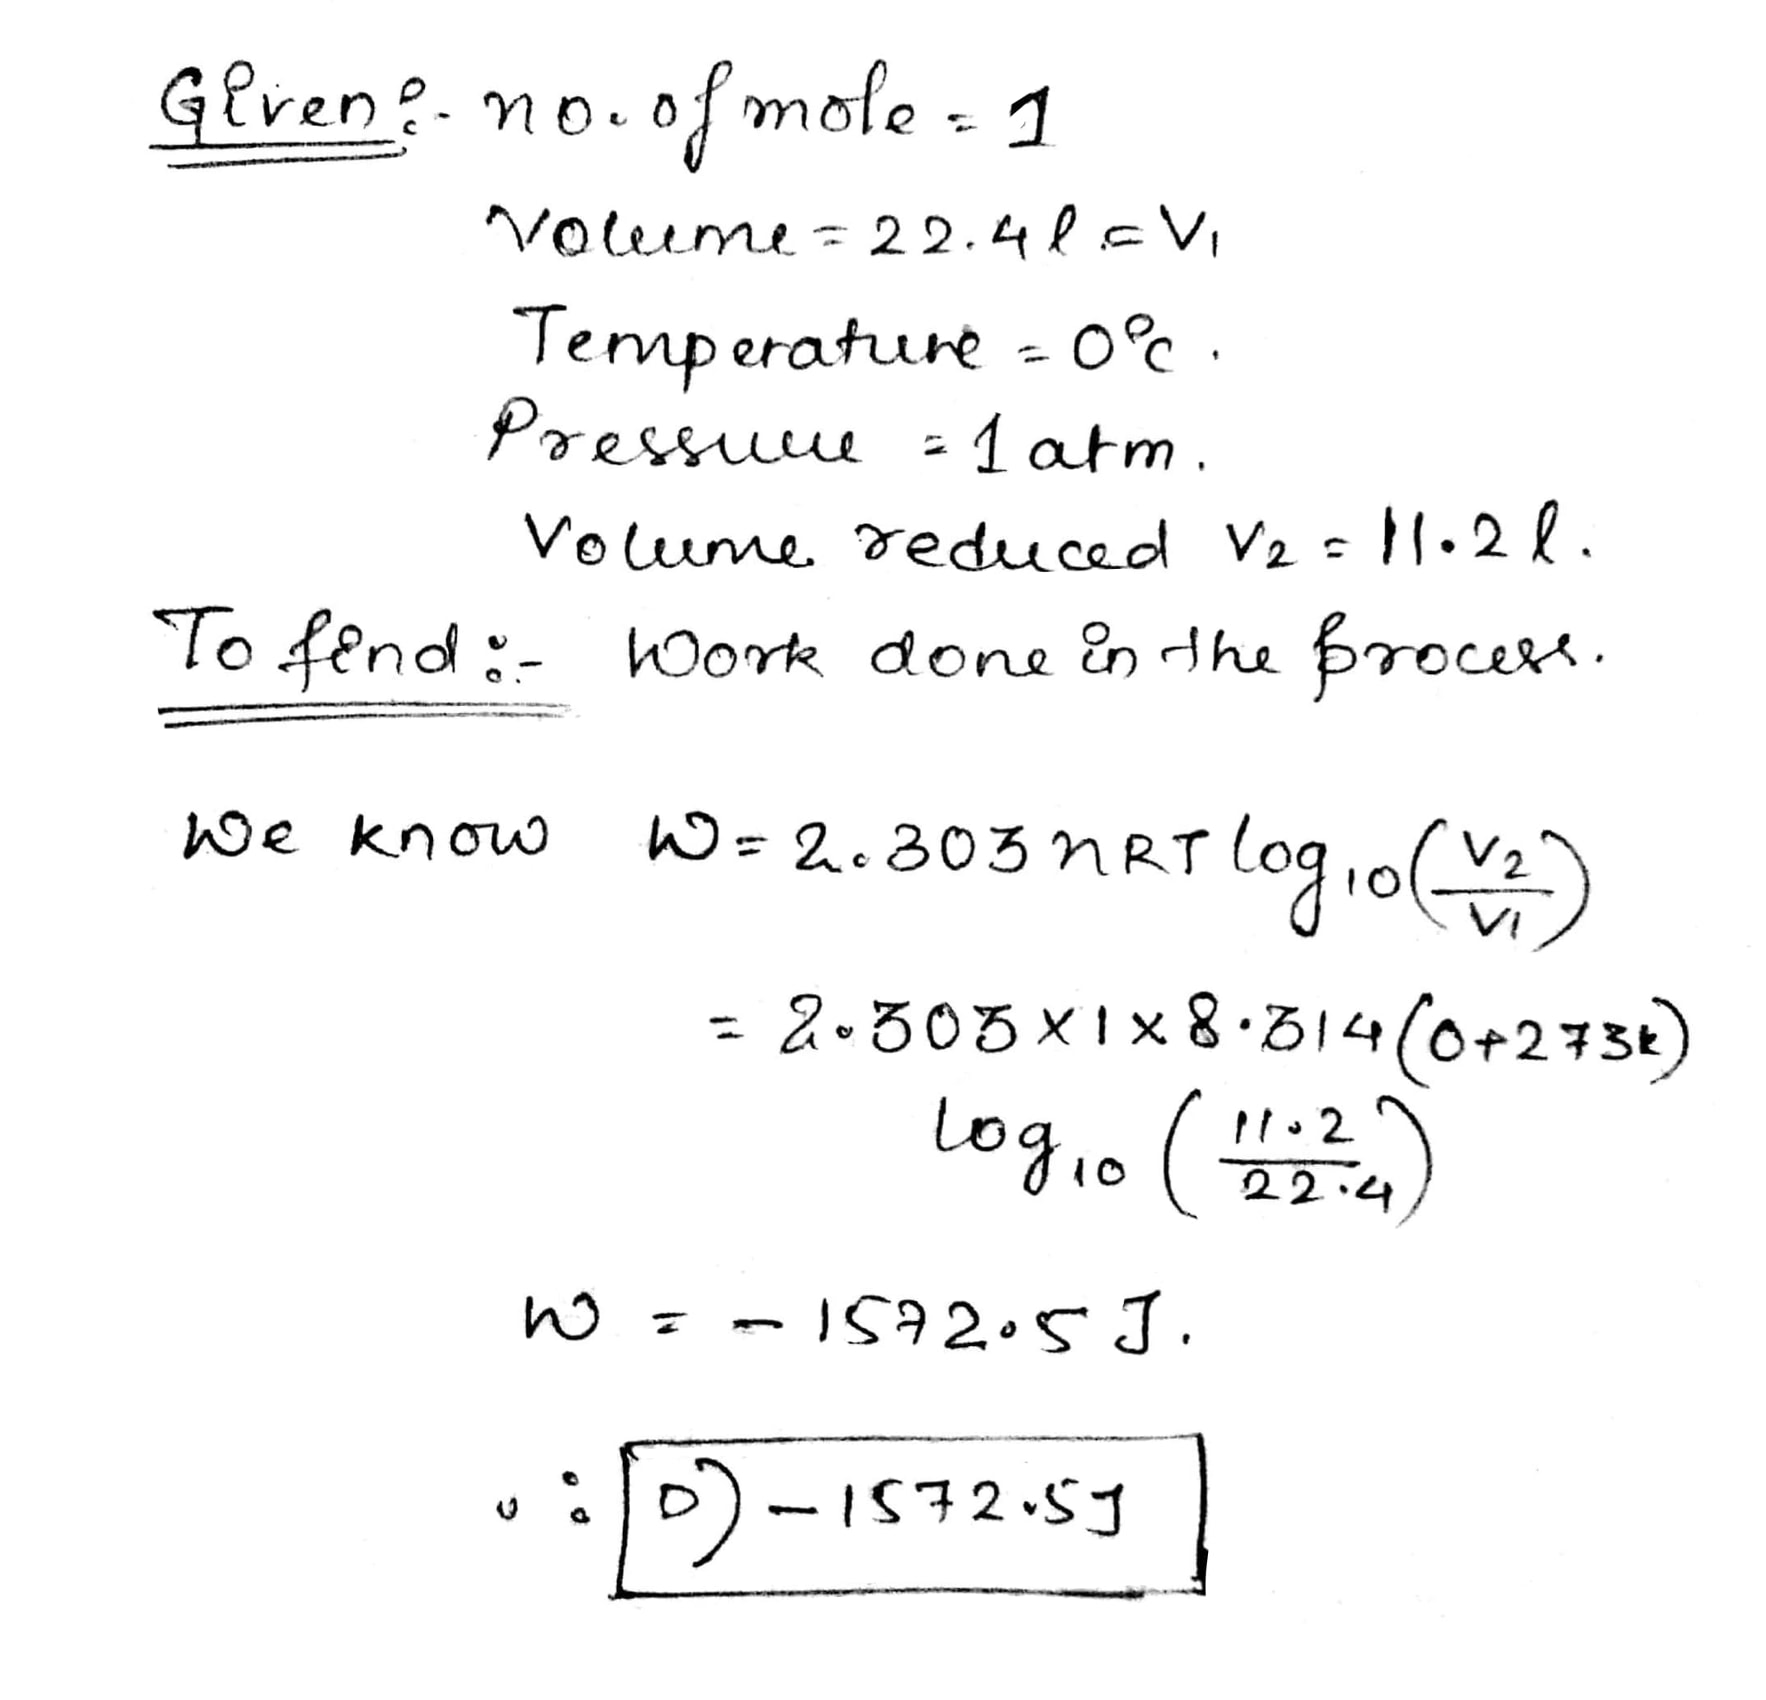 Given:- no. of mole = 1
Volume = 22.4 l = V1
Temperature = 0°c.
Pressure = 1 atm.
Volume reduced V2 = 11.2 l.
To find:- Work done in the process.
We know W = 2.303 nRT log10 (V2/V1)
= 2.303 × 1 × 8.314 (0+273k)
log10 (11.2/22.4)
W = - 1572.5 J.
∴ D) - 1572.5J